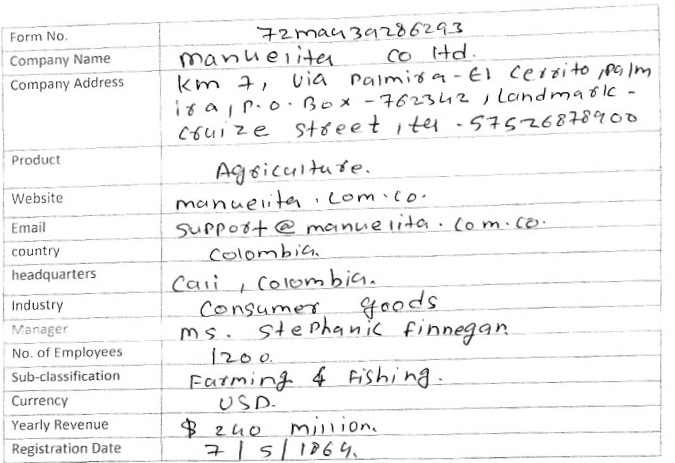 Form No. 72mau39286293
Company Name manuelita co ltd.
Company Address km 7, via palmira-El cerrito, palm
ira, p.o. Box - 762342, Landmark -
cruize street, tel - 57526878900
Product Agriculture.
Website manuelita.com.co.
Email support@manuelita.com.co.
country colombia.
headquarters cali, colombia.
Industry consumer goods
Manager ms. stephanie finnegan
No. of Employees 1200.
Sub-classification Farming & Fishing.
Currency USD.
Yearly Revenue $ 240 million.
Registration Date 7/5/1864.